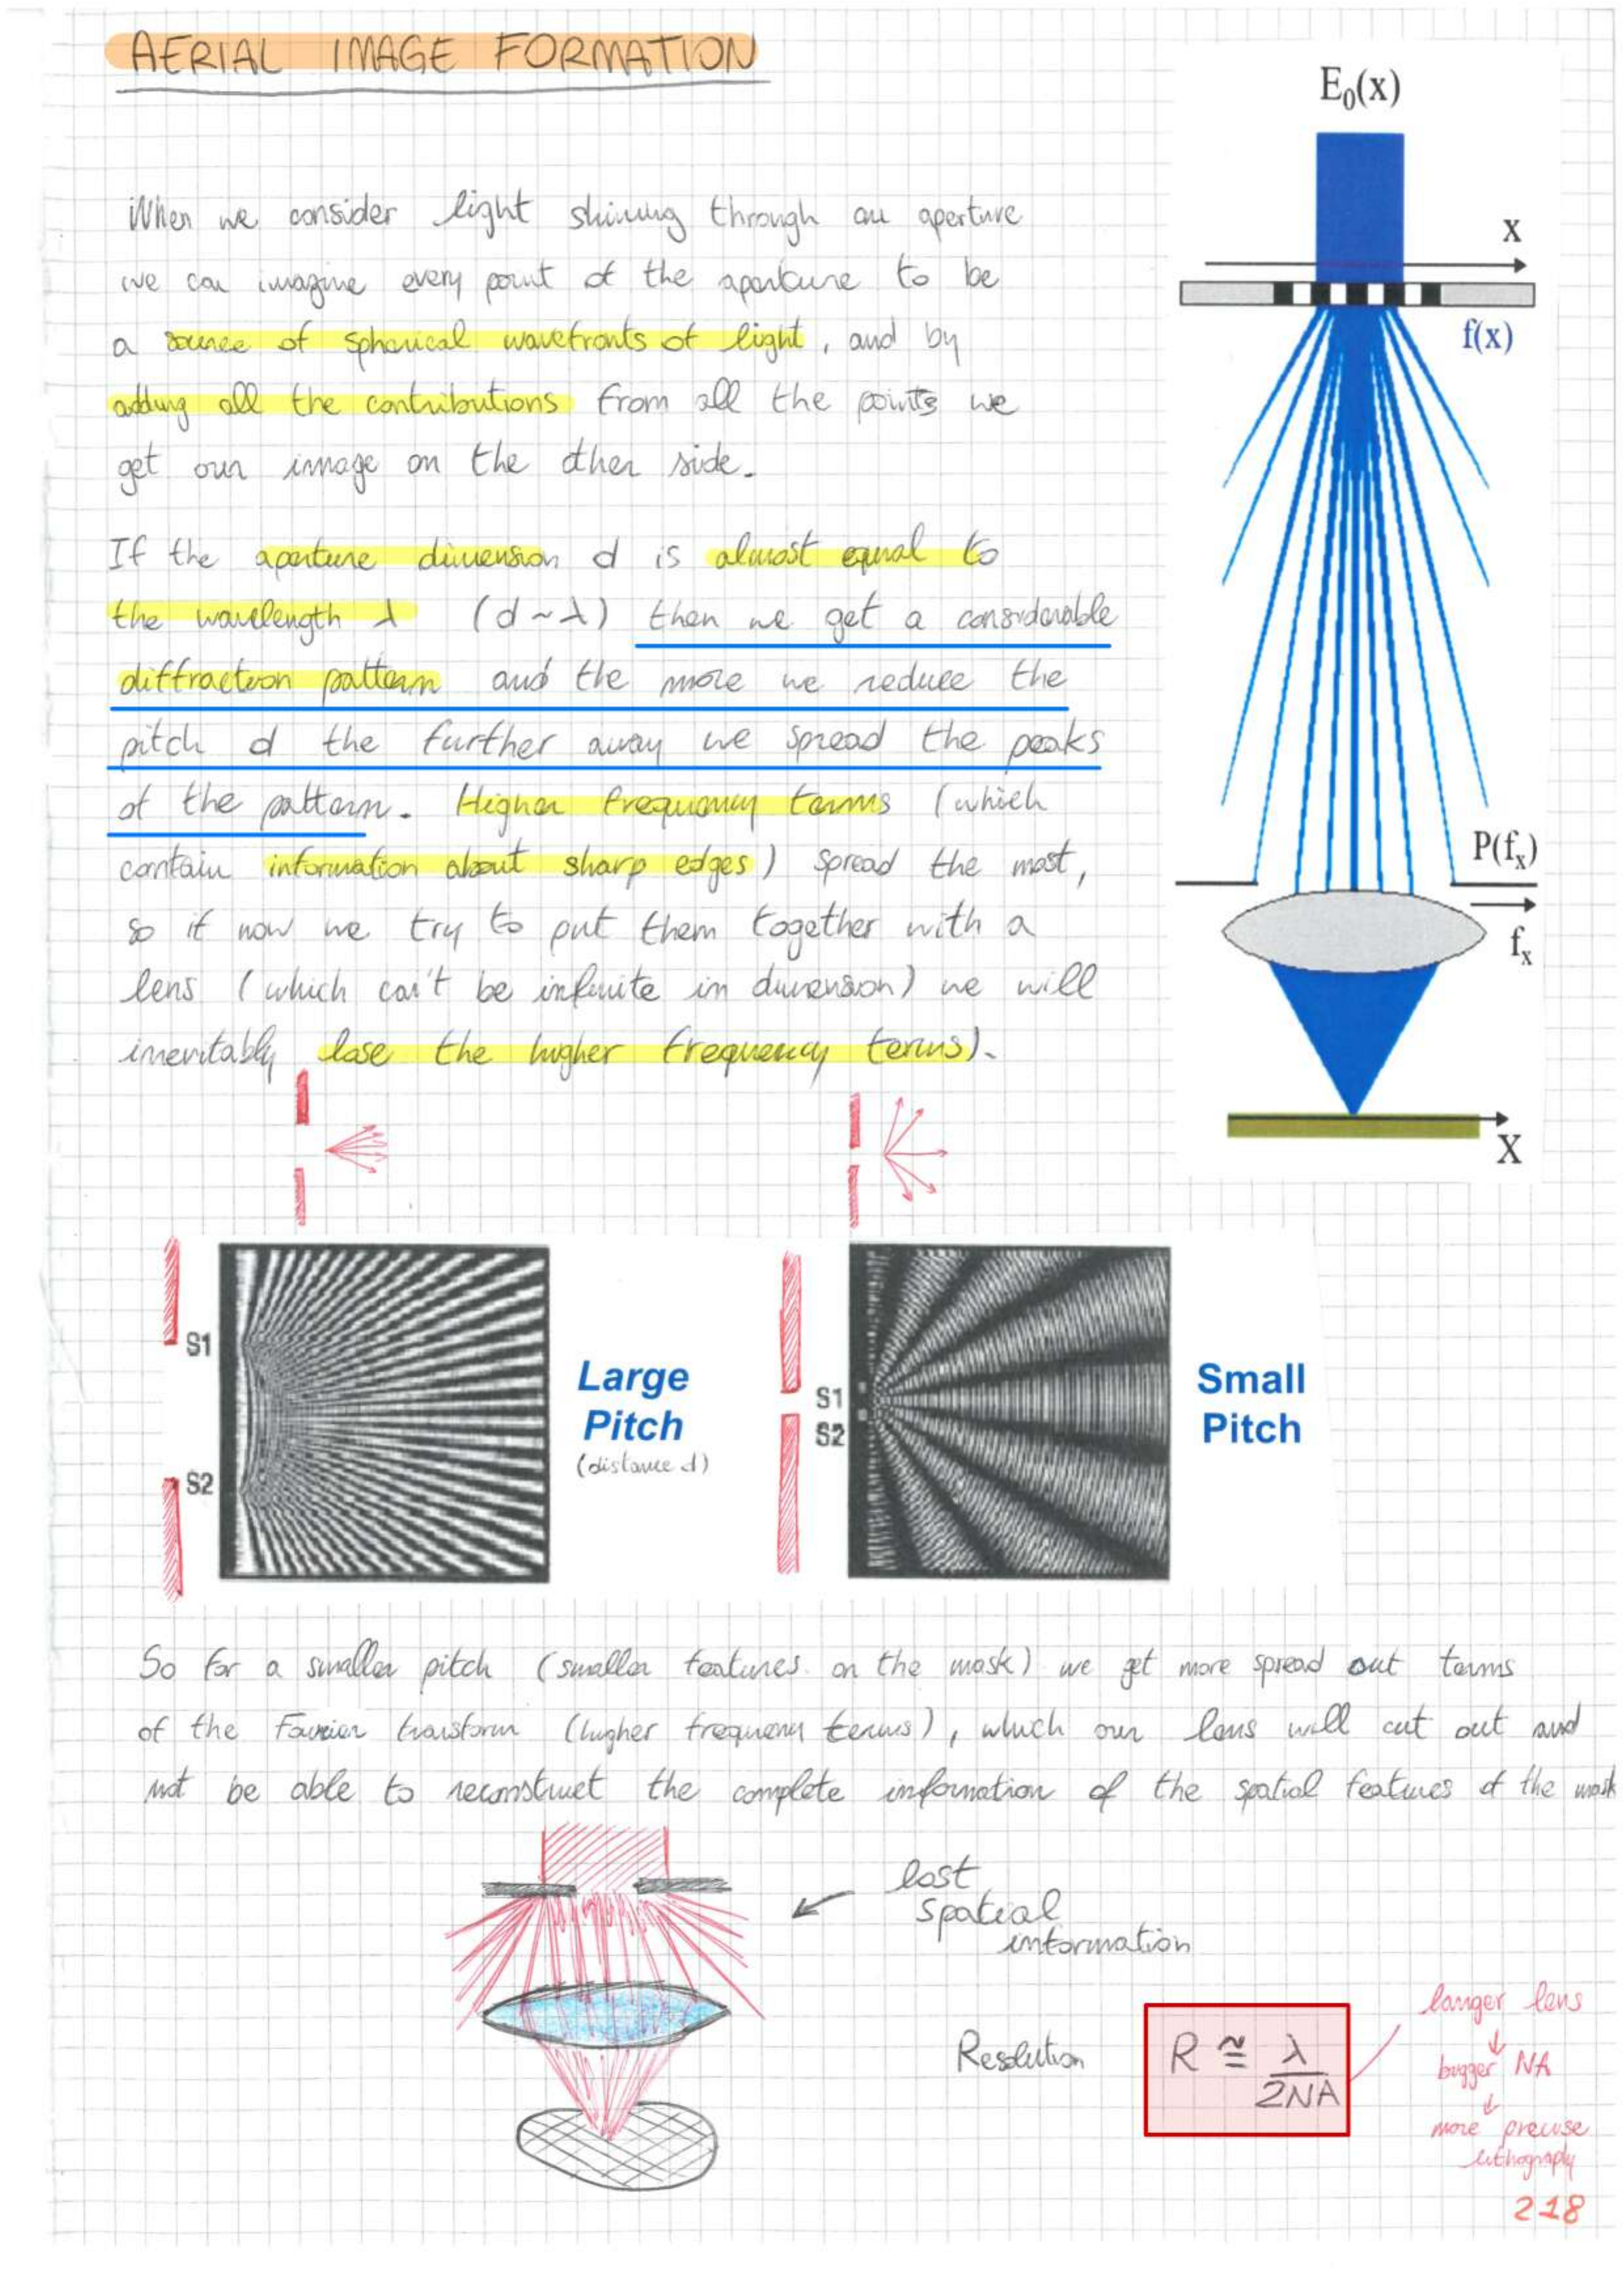 AERIAL IMAGE FORMATION
E₀(x)
When we consider light shining through an aperture
we can imagine every point of the aperture to be
a source of spherical wavefronts of light, and by
adding all the contributions from all the points we
get our image on the other side.
x
f(x)
If the aperture dimension d is almost equal to
the wavelength λ (d ~ λ) then we get a considerable
diffraction pattern and the more we reduce the
pitch d the further away we spread the peaks
of the pattern. Higher frequency terms (which
contain information about sharp edges) spread the most,
so if now we try to put them together with a
lens (which can't be infinite in dimension) we will
inevitably lose the higher frequency terms).
P(fₓ)
fₓ
X
S1
S2
Large
Pitch
(distance d)
S1
S2
Small
Pitch
So for a smaller pitch (smaller features on the mask) we get more spread out terms
of the Fourier transform (higher frequency terms), which our lens will cut out and
not be able to reconstruct the complete information of the spatial features of the mask
lost
spatial
information
Resolution
R ≅ λ/2NA
larger lens
↓
bigger NA
↓
more precise
lithography
218